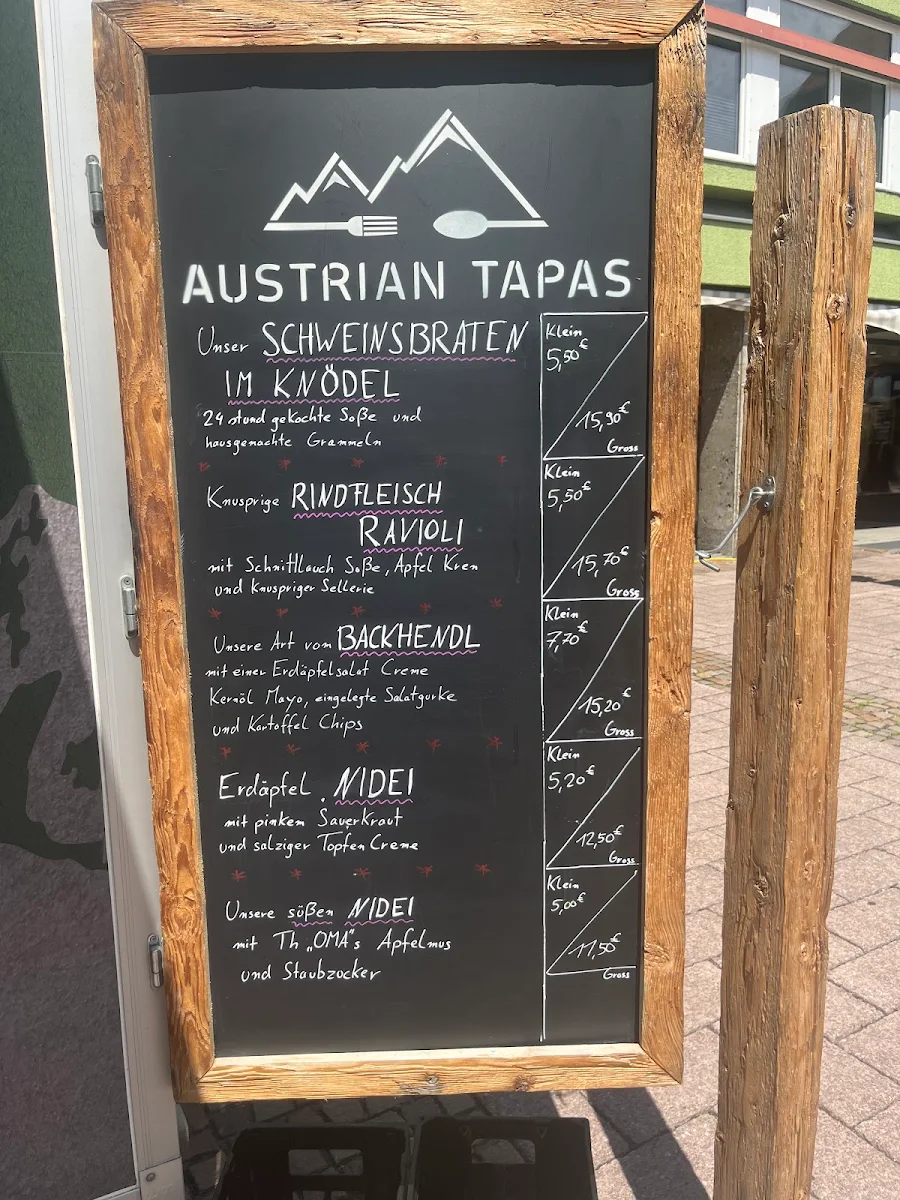 AUSTRIAN TAPAS
Unser SCHWEINSBRATEN
IM KNÖDEL
24 stund gekochte Soße und
hausgemachte Grammeln
Klein
5,50€
15,90€
Gross
Knusprige RINDFLEISCH
RAVIOLI
mit Schnittlauch Soße, Apfel Kren
und Knuspriger Sellerie
Klein
5,50€
15,70€
Gross
Unsere Art von BACKHENDL
mit einer Erdäpfelsalat Creme
Kernöl Mayo, eingelegte Salatgurke
und Kartoffel Chips
Klein
7,70€
15,20€
Gross
Erdäpfel NIDEI
mit pinken Sauerkraut
und salziger Topfen Creme
Klein
5,20€
12,50€
Gross
Unsere süßen NIDEI
mit Th „OMA"s Apfelmus
und Staubzucker
Klein
5,00€
11,50€
Gross